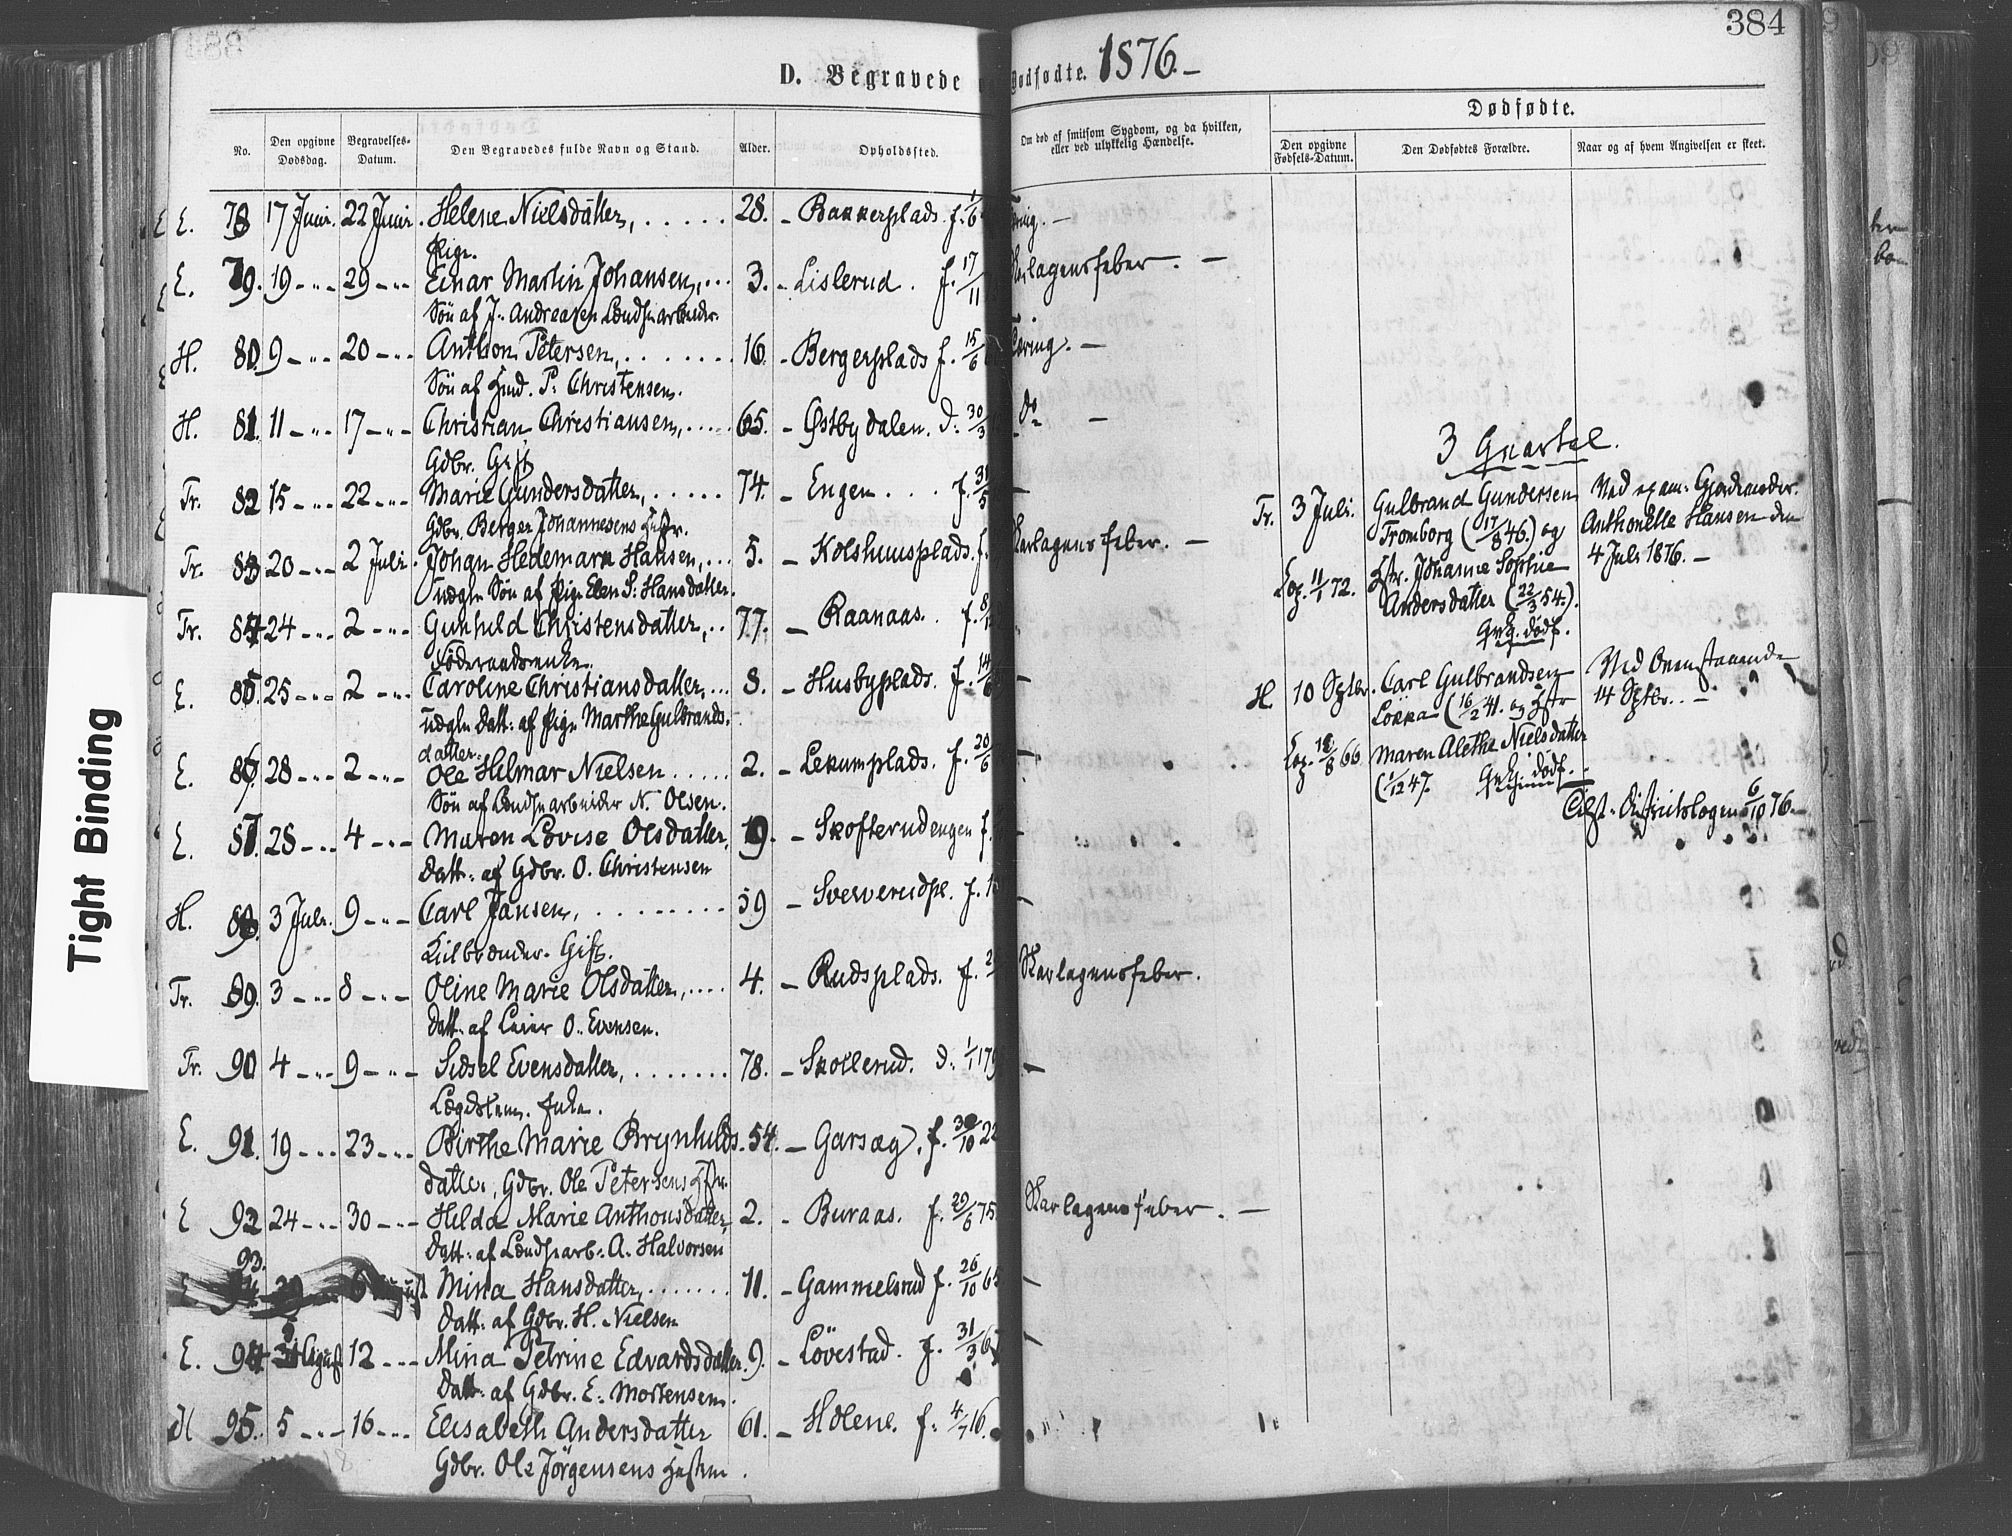 384
D. Begravede
Dødfødte. 1876.
No.
Den opgivne Dødsdag.
Begravelses-Datum.
Den Begravedes fulde Navn og Stand.
Alder.
Opholdssted.
Om død af smitsom Sygdom, og da hvilken, eller ved ulykkelig Hændelse.
Dødfødte.
Den opgivne Fødsels-Datum.
Den Dødfødtes Forældre.
Naar og af hvem Angivelsen er skeet.
E. 78 17 Juni. 22 Juni. Helene Nielsdatter, 28. Bakkerplads. f. 1/6
Pige.
E. 79. 19 29 Einar Martin Johansen, 3. Lislerud. f. 17/11 Skarlagensfeber.
Søn af J. Andreasen
H. 80. 9 20 Anthon Petersen, 16. Bergerplads f. 15/6 Tæring.
Søn af Hmd. P. Christensen.
H. 81. 11 17 Christian Christiansen, 65. Østbydalen. d. 30/3 do
Gdbr. Gift
Tr. 82 15 22 Marie Gundersdatter, 74. Engen f. 31/5
Gdbr. Berger Johannesens Hustr.
Tr. 83 20 2 Juli Johan Hedemark Hansen, 5. Kolshuusplads. f. Skarlagensfeber.
uægte Søn af Pige Elen S. Hansdatter.
Tr. 84 24 2 Gunhild Christensdatter, 77. Raanaas. f.
Føderaadsenke.
E. 85 25 2 Caroline Christiansdatter, 8. Husbyplads. f. 14/
uægte Datt: af Pige Marthe Gulbrands-
datter.
E. 86. 28 2 Ole Hilmar Nielsen 2. Lekumplads. f. 20/6
Søn af N. Olsen.
E. 87. 28 4 Maren Lovise Olsdatter, 19. Skofterudengen f.
Datt: af Gdbr. O. Christensen
H. 88. 3 Juli. 9 Carl Jansen, 59 Sververudpl. f.
Gift.
Tr. 89. 3 8 Oline Marie Olsdatter, 4. Rudsplads. f. Skarlagensfeber.
Datt. af Leier O. Evensen.
Tr. 90 4 9 Sidsel Evensdatter, 78. Skollerud. d. 1/1 179
Lægdslem. Enke.
E. 91. 19 23 Birthe Marie Brynhilds- 54. Garsæg, f. 30/10 22
datter, Gdbr. Ole Petersens Hstr.
E 92 24 30 Hilda Marie Anthonsdatter, 2. Buraas. f. 29/6 75 Skarlagensfeber.
Datt: af A. Halvorsen
93.
E August Mina Hansdatter, 11. Gammelsrud f. 26/10 65
Datt: af Gdbr. H. Nielsen
E. 94 August 12 Mina Petrine Edvardsdatter 9. Løvestad. f. 31/3 67
Datt: af Gdbr. E. Mortensen.
H 95. 5 16 Elisabeth Andersdatter 61. Holene. f. 4/7 16.
Gdbr. Ole Jørgensens Hustru.
3 Quartal.
Tr. 3 Juli. Gulbrand Gundersen Ved exam: Gjordemoder.
Tromborg (17/8 46.) og Anthonette Hansen den
Hstr. Johanne Sophie 4 Juli 1876.
Cop. 11/1 72. Andersdatter (22/3 54.).
Gnkj. dødf.
H. 10 Sptbr. Carl Gulbrandsen Ved Ovenstaaende
Lokka (16/2 41. og Hstr 14 Sptbr.
Cop. 18/8 66 Maren Alethe Nielsdatter
(1/12 47. dødf.
Distriktslægen 6/10 76.
Tight Binding